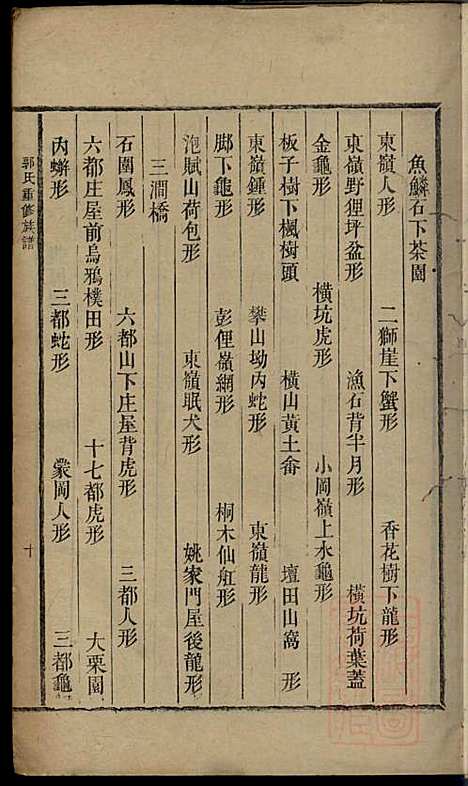 魚鱗石下茶園
東嶺人形 二獅崖下蟹形 香花樹下龍形
東嶺野狸坪盆形 漁石背半月形 橫坑荷葉蓋
金龜形 橫坑虎形 小岡嶺上水龜形
板子樹下楓樹頭 橫山黃土畬 壇田山窩 形
東嶺鍾形 攀山坳內蛇形 東嶺龍形
脚下龜形 彭俚嶺網形 桐木仙舡形
泡賦山荷包形 東嶺眠犬形 姚家門屋後龍形
三澗橋
石圍鳳形 六都山下庄屋背虎形 三都人形
六都庄屋前烏鴉樸田形 十七都虎形 大栗園
內蠏形 三都蛇形 蒙岡人形 三都龜
郭氏重修族譜 十